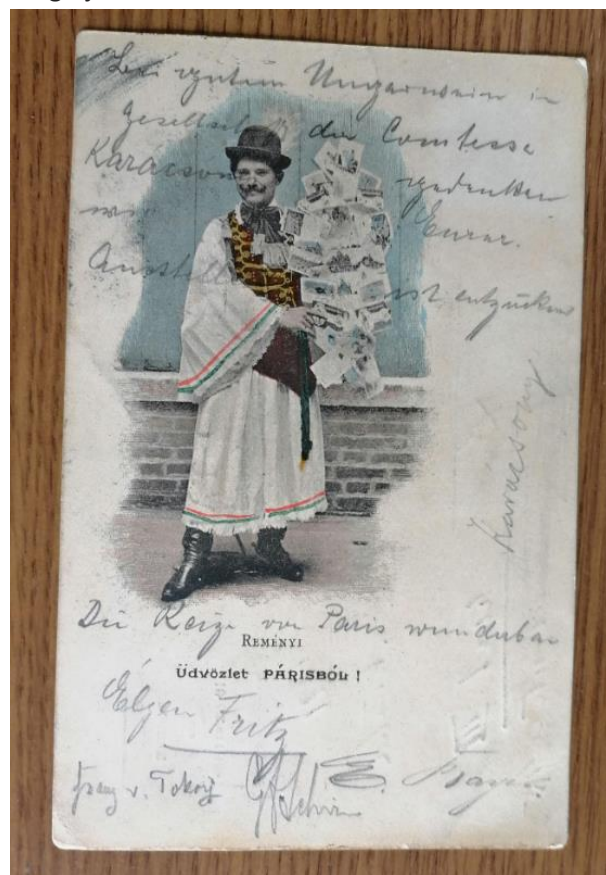 gutem Ungarwein in
Gesellschaft der Comtesse
Karácson gedenken
wir Eurer.
Ausstell ist entzückend
Karacsony
Die Reize von Paris wunderbar
REMÉNYI
Üdvözlet PÁRISBÓL !
Éljen Fritz
Franz v. E.